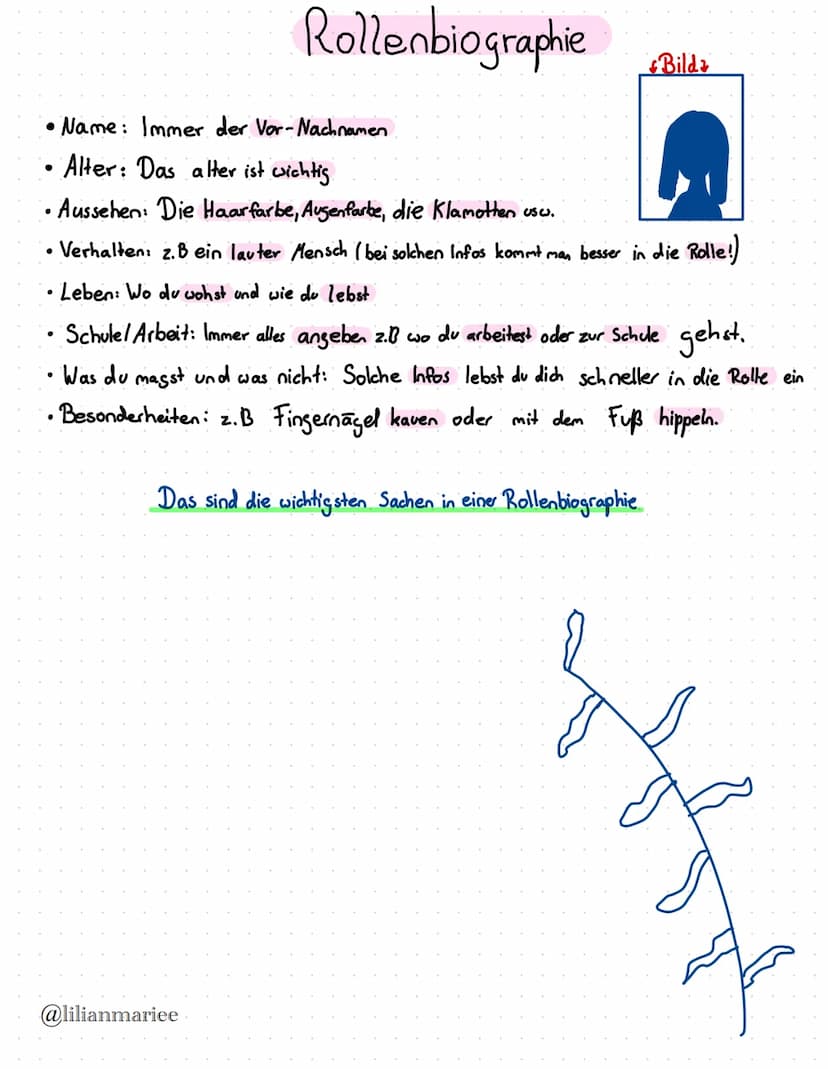 Rollenbiographie
↓Bild↓
• Name: Immer der Vor-Nachnamen
• Alter: Das alter ist wichtig
• Aussehen: Die Haarfarbe, Augenfarbe, die Klamotten usw.
• Verhalten: z.B ein lauter Mensch (bei solchen Infos kommt man besser in die Rolle!)
• Leben: Wo du wohst und wie du lebst
• Schule/Arbeit: Immer alles angeben z.B wo du arbeitest oder zur Schule gehst.
• Was du magst und was nicht: Solche Infos lebst du dich schneller in die Rolle ein
• Besonderheiten: z.B Fingernägel kauen oder mit dem Fuß hippeln.
Das sind die wichtigsten Sachen in einer Rollenbiographie
@lilianmariee